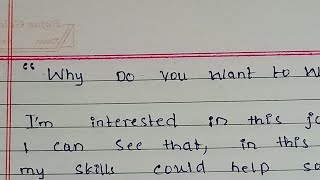 “ Why Do You Want to W
I'm interested in this jo
I can see that, in this
my skills could help so